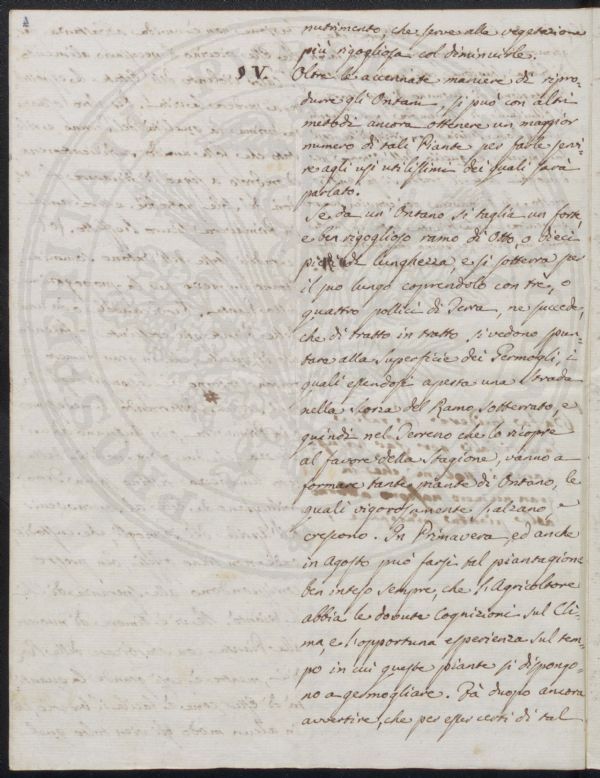 nutrimento, che serve alla vegetazione
più rigogliosa col diminuirle.
§ V.
Oltre le accennate maniere di ripro-
durre gli Ontani, si può con altri
metodi ancora ottenere un maggior
numero di tali Piante per farle servi-
re agli usi utilissimi dei quali sarà
parlato.
Se da un' Ontano si taglia un forte,
e ben rigoglioso ramo di Otto, o Dieci
piedi di lunghezza, e si sotterra per
il suo lungo coprendolo con trè, o
quattro pollici di Terra, ne succede,
che di tratto in tratto si vedono spun-
tare alla superficie dei Germogli, i
quali essendosi aperta una strada
nella scorza del Ramo sotterrato, e
quindi nel Terreno che lo ricopre
al favore della Stagione, vanno a
formare tante piante di Ontano, le
quali vigorosamente s'alzano, e
crescono. In Primavera, ed anche
in Agosto può farsi tal piantagione
ben inteso sempre, che l'Agricoltore
abbia le dovute Cognizioni sul Cli-
ma, e l'opportuna esperienza sul tem-
po in cui queste piante si dispongo-
no a germogliare. Fà duopo ancora
avvertire, che per esser certi di tal